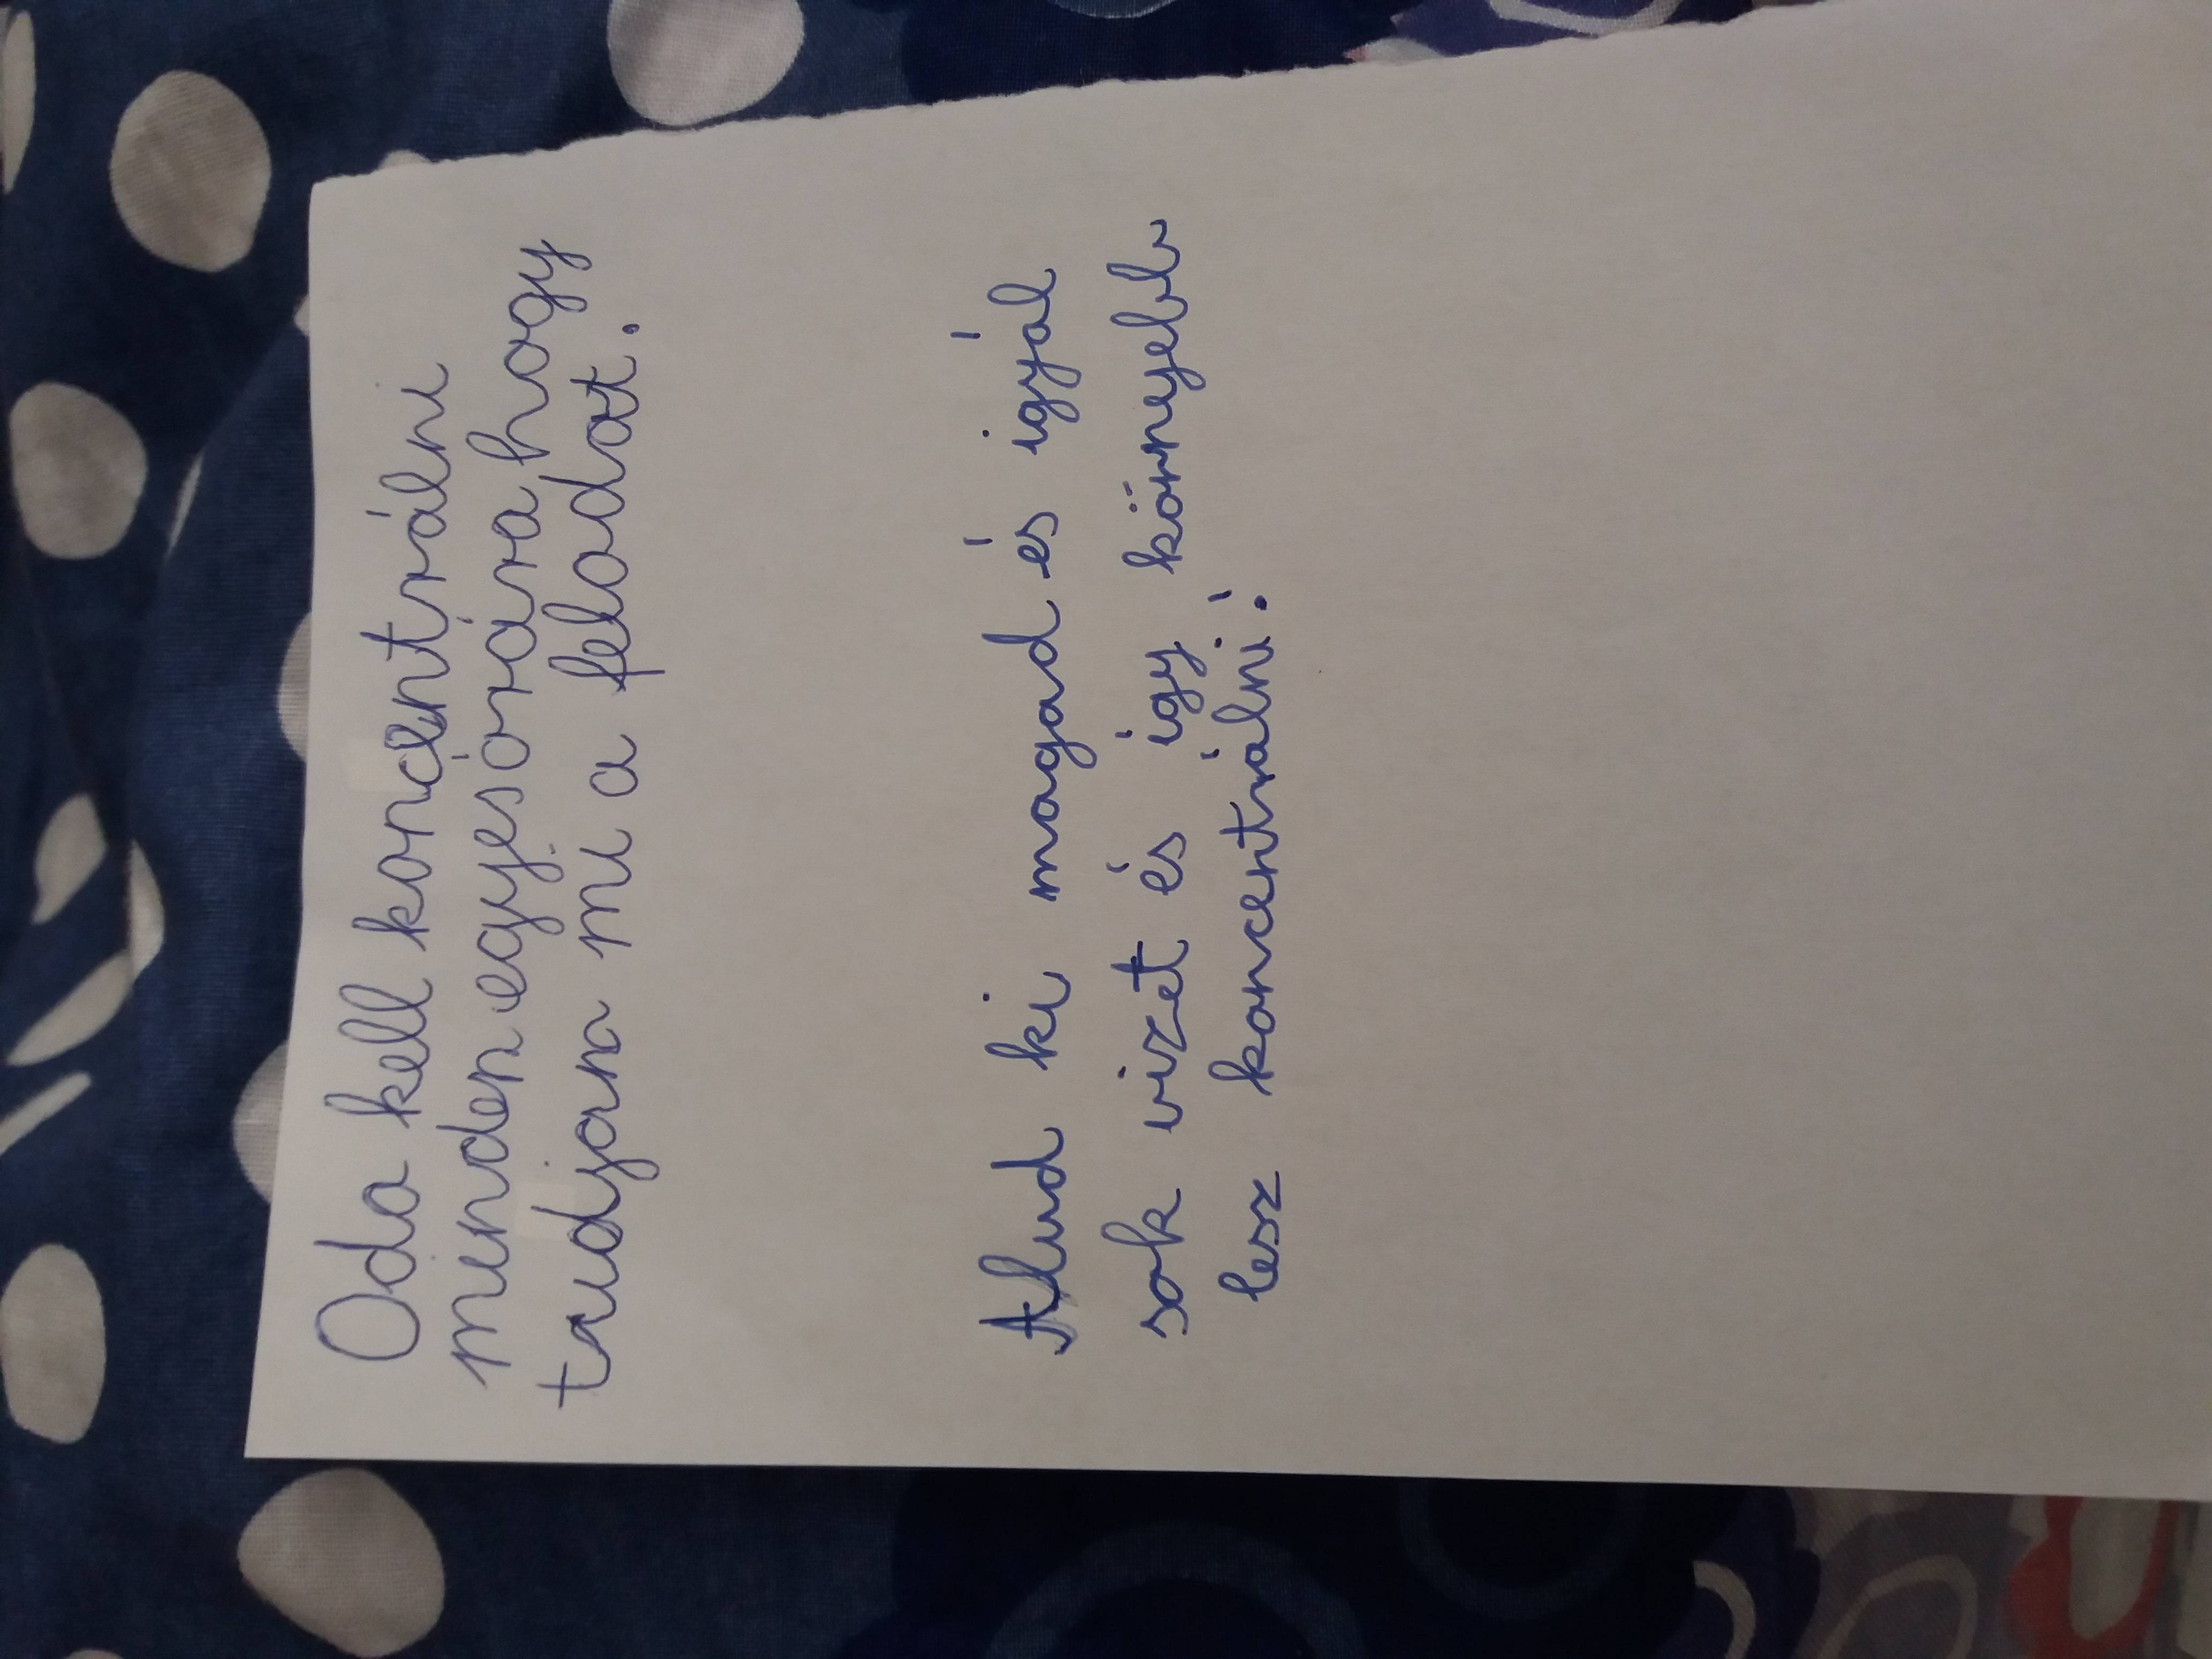 Oda kell koncentrálni
minden egyes órára hogy
tudjam mi a feladat.
Alud ki magad és igyál
sok vizet és így könnyebb
lesz koncentrálni!